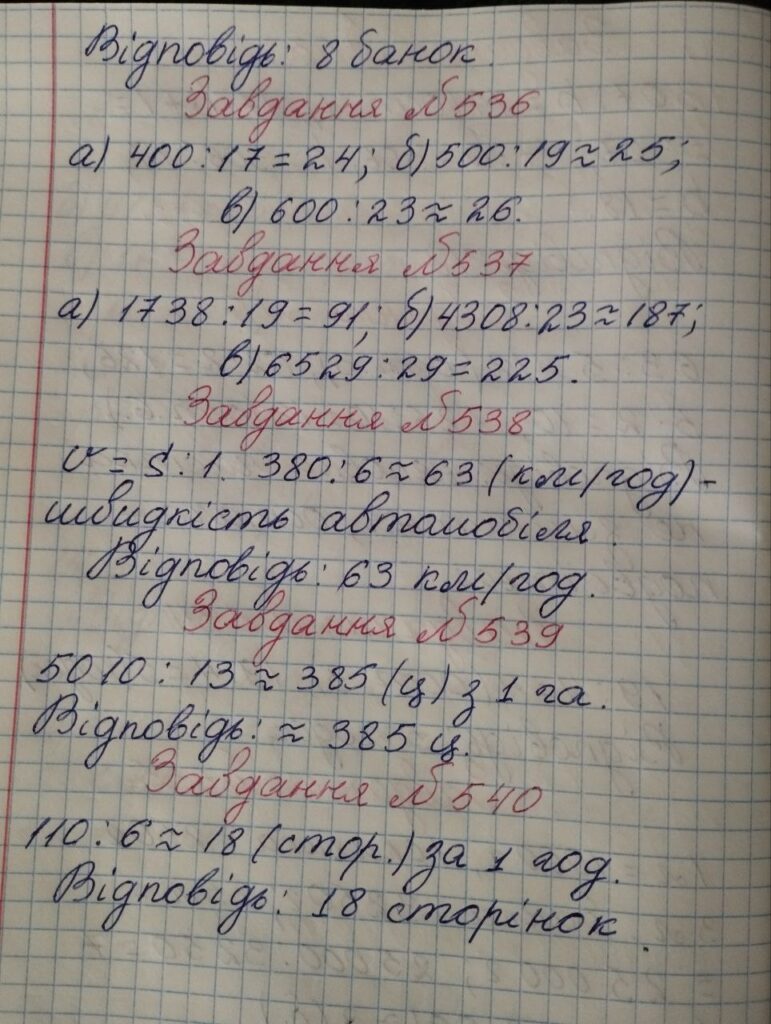 Відповідь: 8 банок.
Завдання №536
а) 400:17=24; б) 500:19≈25;
в) 600:23≈26.
Завдання №537
а) 1738:19=91; б) 4308:23≈187;
в) 6529:29=225.
Завдання №538
v=S:1. 380:6≈63 (км/год)-
швидкість автомобіля.
Відповідь: 63 км/год.
Завдання №539
5010:13≈385 (ц) з 1 га.
Відповідь: ≈385 ц.
Завдання №540
110:6≈18 (стор.) за 1 год.
Відповідь: 18 сторінок.